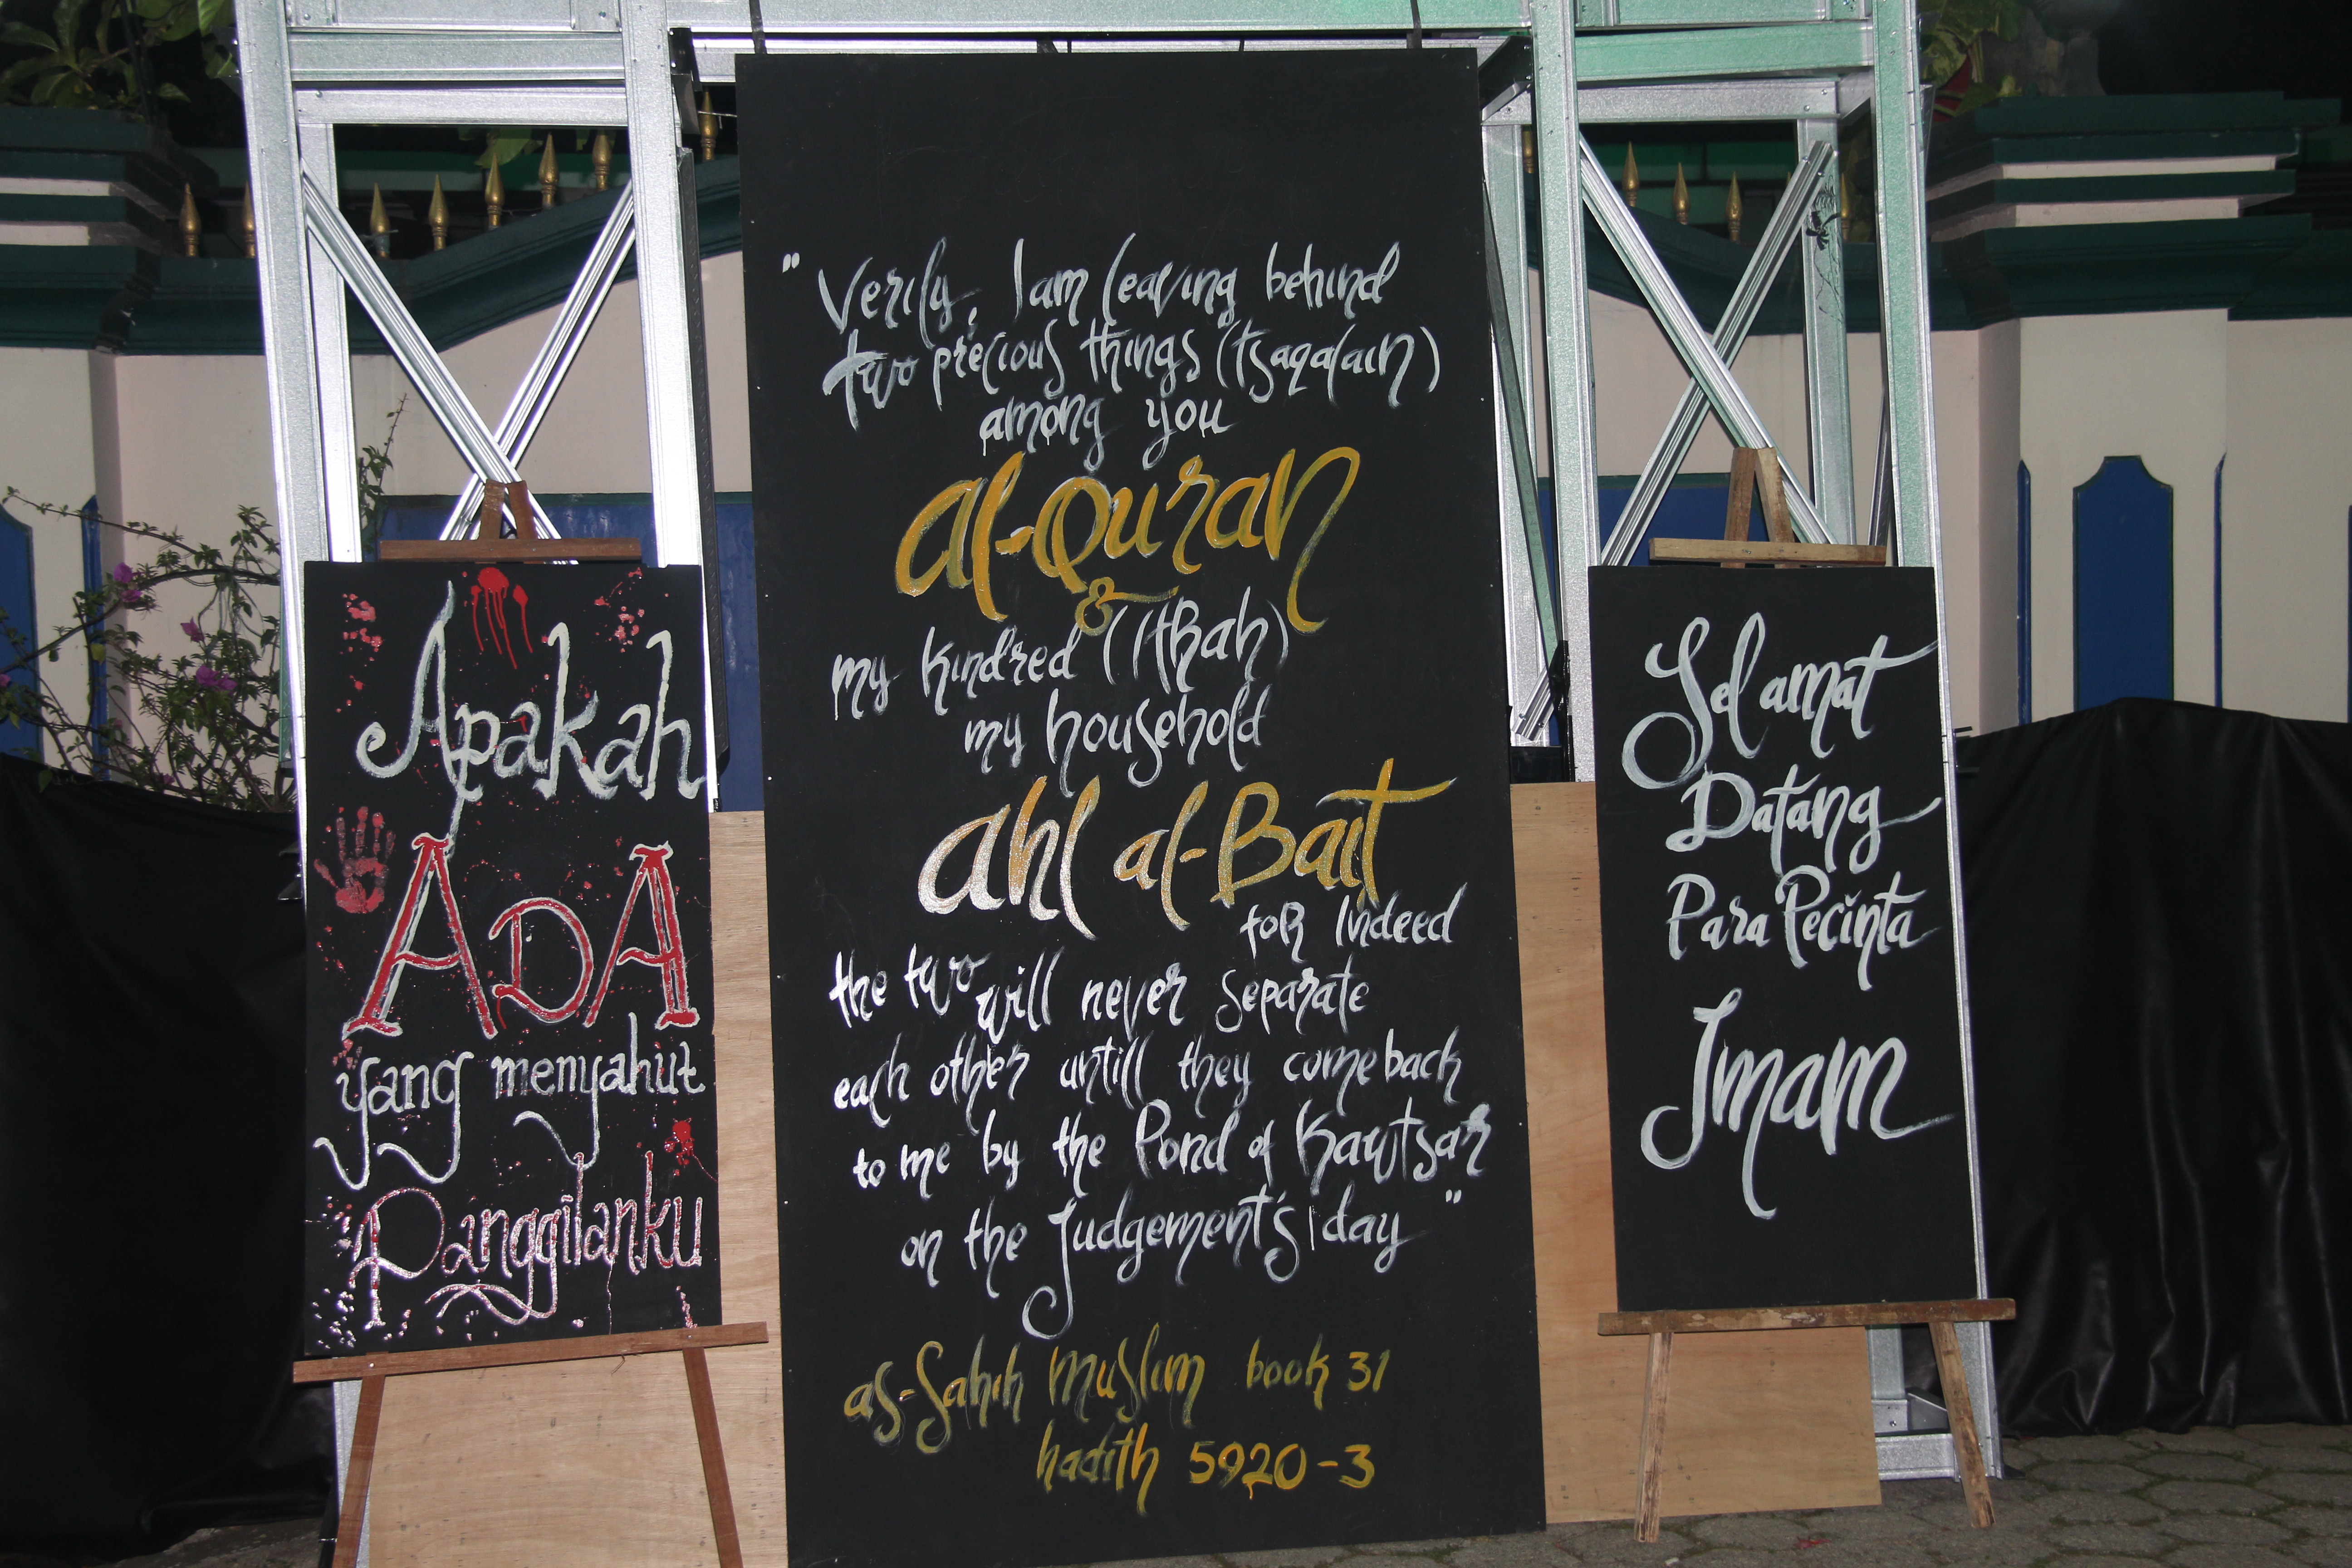 Apakah
ADA
yang menyahut
Panggilanku
" Verily, I am leaving behind
two precious things (tsaqalain)
among you
al-Quran
&
my kindred (itRah)
my household
ahl al-Bait
foR indeed
the two will never separate
each other untill they come back
to me by the Pond of Kawtsar
on the Judgement's day "
as-Sahih Muslim book 31
hadith 5920-3
Selamat
Datang
Para Pecinta
Imam